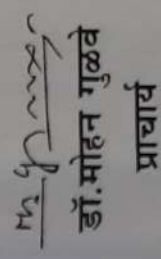 डॉ.मोहन गुळवे
प्राचार्य